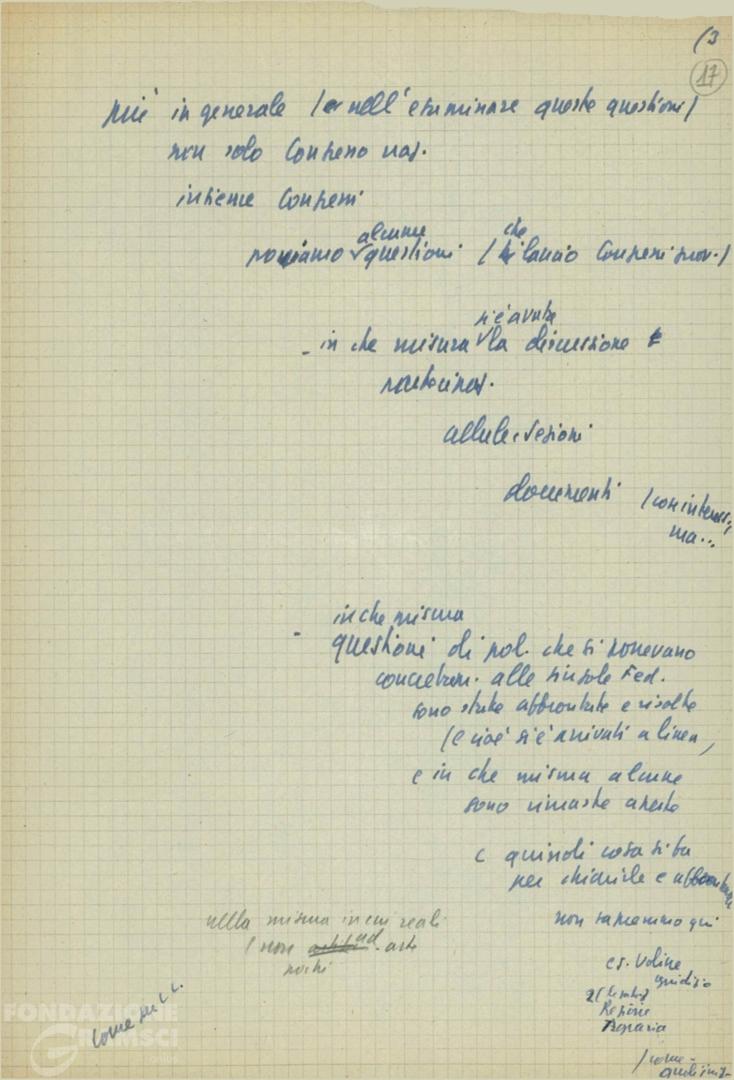 (3
17
più in generale (e nell'esaminare queste questioni)
non solo Congresso naz.
insieme Congressi
poniamo alcune questioni (che bilancio Congressi prov.)
- in che misura si è avuta la discussione
alle Sezioni
documenti (con interess.,
ma...
in che misura
- questioni di pol. che si ponevano
concretam. alle singole Fed.
sono state affrontate e risolte
(e cioè si è arrivati a linea,
e in che misura alcune
sono rimaste aperte
e quindi cosa si fa
per chiarirle e affrontarle
nella misura in cui reali
(non ad arte
non sapremmo qui
es. Udine
giudizio
Regione
come su
(come
FONDAZIONE
GRAMSCI